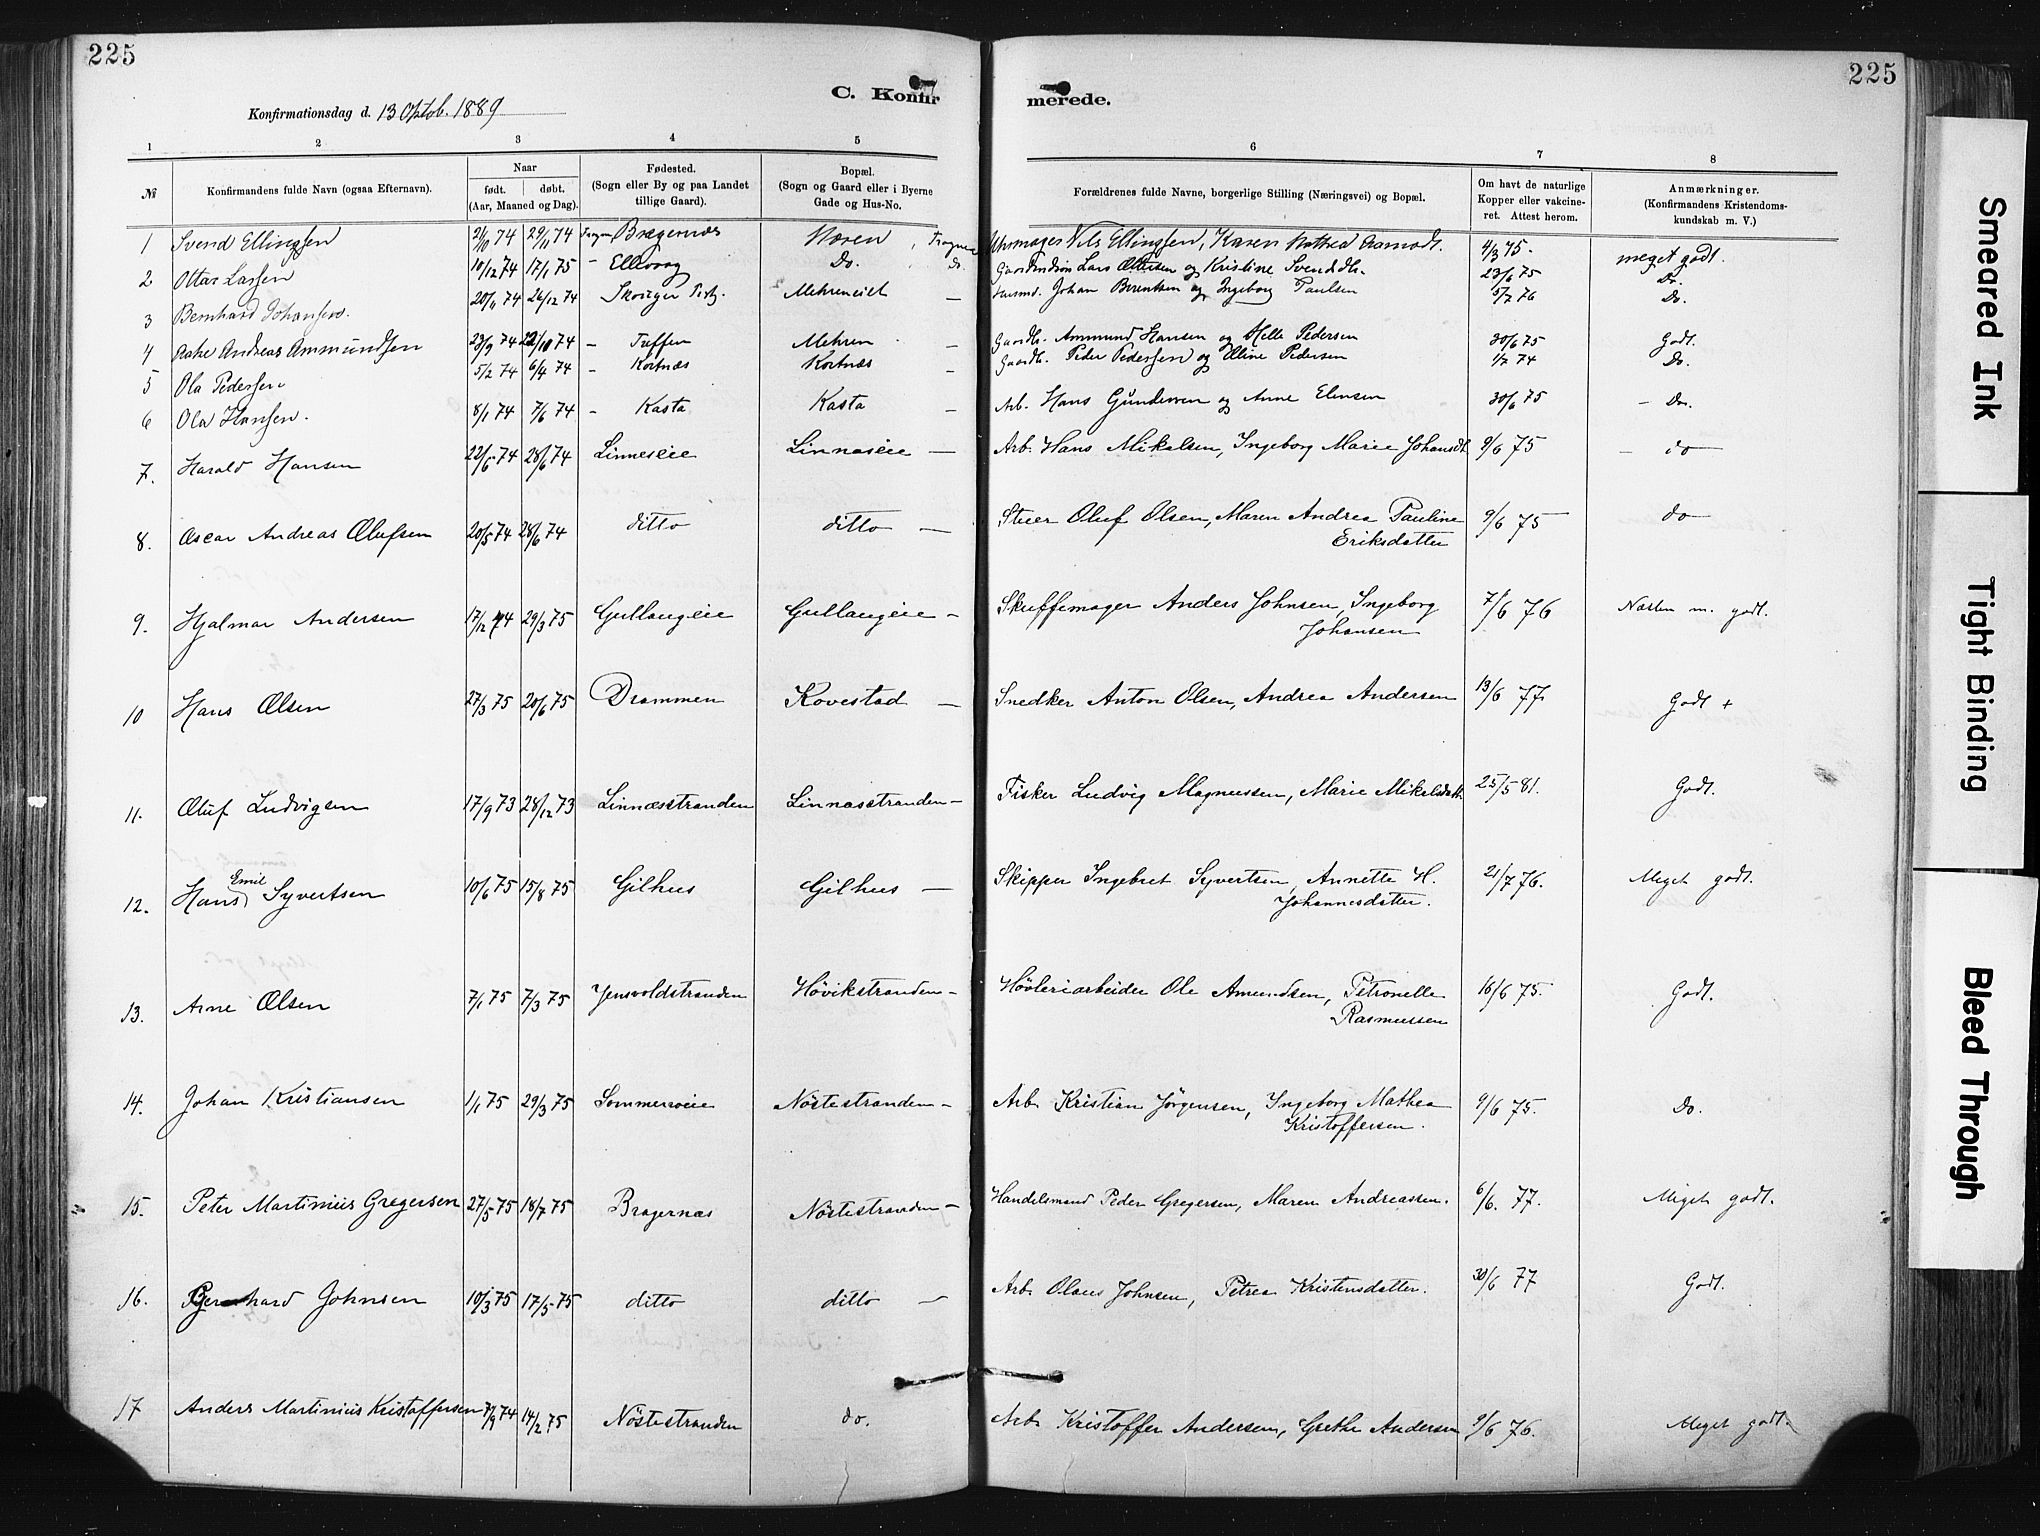 225
225
C. Konfirmerede.
Konfirmationsdag d. 13 Oktob. 1889
1 2 3 4 5 6 7 8
№
Konfirmandens fulde Navn (ogsaa Efternavn).
Naar
født. døbt.
(Aar, Maaned og Dag).
Fødested.
(Sogn eller By og paa Landet
tillige Gaard).
Bopæl.
(Sogn og Gaard eller i Byerne
Gade og Hus-No.
Forældrenes fulde Navne, borgerlige Stilling (Næringsvei) og Bopæl.
Om havt de naturlige
Kopper eller vakcine-
ret. Attest herom.
Anmærkninger.
(Konfirmandens Kristendoms-
kundskab m. V.)
1 Svend Ellingsen 21/10 74 29/11 74 Bragernæs Nils Ellingsen, Karen 4/3 75. meget godt.
2 Ottar Larsen 10/12 74 17/1 75 - Do. Do. Lars og Kristine 23/6 75 Do.
3 Bernhard Johansen. 20/11 74 26/12 74 Skouger Mehreneiet — Husmd. Johan Berentsen og Ingeborg Paulsen 5/7 76 Do.
4 Andreas Ammundsen 23/9 74 22/10 74 - Mehren — Gaardb. Ammund Hansen og Helle Pedersen 30/6 75 Godt.
5 Ola Pedersen 5/2 74 6/4 74 - Kortnæs Kortnæs — Gaardb. Peder Pedersen og Eline Pedersen 1/7 74 Do.
6 Ola Hansen. 8/1 74 7/6 74 - Kasta Kasta — Arb. Hans Gundersen og Anne Elensen 30/6 75 - Do.
7. Harald Hansen 22/5 74 28/6 74 Linneseie Linnæseie — Arb. Hans Mikalsen, Ingeborg Marie Johansdt 9/6 75 — do —
8. Oscar Andreas Olufsen 20/5 74 28/6 74 ditto ditto — Oluf Olsen, Maren Andrea Pauline
Eriksdatter 9/6 75 do
9. Hjalmar Andersen 17/12 74 29/3 75 Gullaugeie Gullaugeie — Skuffemager Anders Johnsen, Ingeborg
Johansen 7/6 76 Næsten m. godt.
10 Hans Olsen 27/3 75 20/6 75 Drammen Kovestad — Snedker Anton Olsen, Andrea Andersen 13/6 77. Godt +
11. Oluf Ludvigsen 17/9 73 28/12 73 Linnæsstranden Linnæsstranden — Fisker Ludvig Magnussen, Marie Mikelsdatt. 25/5 81. Godt.
12. Hans Emil Syvertsen 10/6 75 15/8 75 Gilhus Gilhus — Skipper Ingebret Syvertsen, Annette H.
Johannesdatter. 21/7 76. Meget godt.
13. Arne Olsen 7/1 75 7/3 75 Jensvoldstranden Høvikstranden — Høvleriarbeider Ole Amundsen, Petronelle
Rasmussen 16/6 75. Godt.
14. Johan Kristiansen 1/1 75 29/3 75 Sommerroeie Nøstestranden — Arb. Kristian Jørgensen, Ingeborg Mathea
Kristoffersen. 9/6 75. Do.
15. Peter Martinius Gregersen 27/5 75 18/7 75 Bragernæs Nøstestranden — Handelsmand Peder Gregersen, Maren Andreassen. 6/6. 77. Meget godt.
16. Bernhard Johnsen 10/3 75 17/5 75 ditto ditto — Arb. Olaus Johnsen, Petrea Kristensdatter. 30/6 77 Godt.
17 Anders Martinius Kristoffersen 7/9 74 14/2 75 Nøstestranden do. Arb. Kristoffer Andersen, Grethe Andersen 9/6 76. Meget godt.
Smeared Ink
Tight Binding
Bleed Through